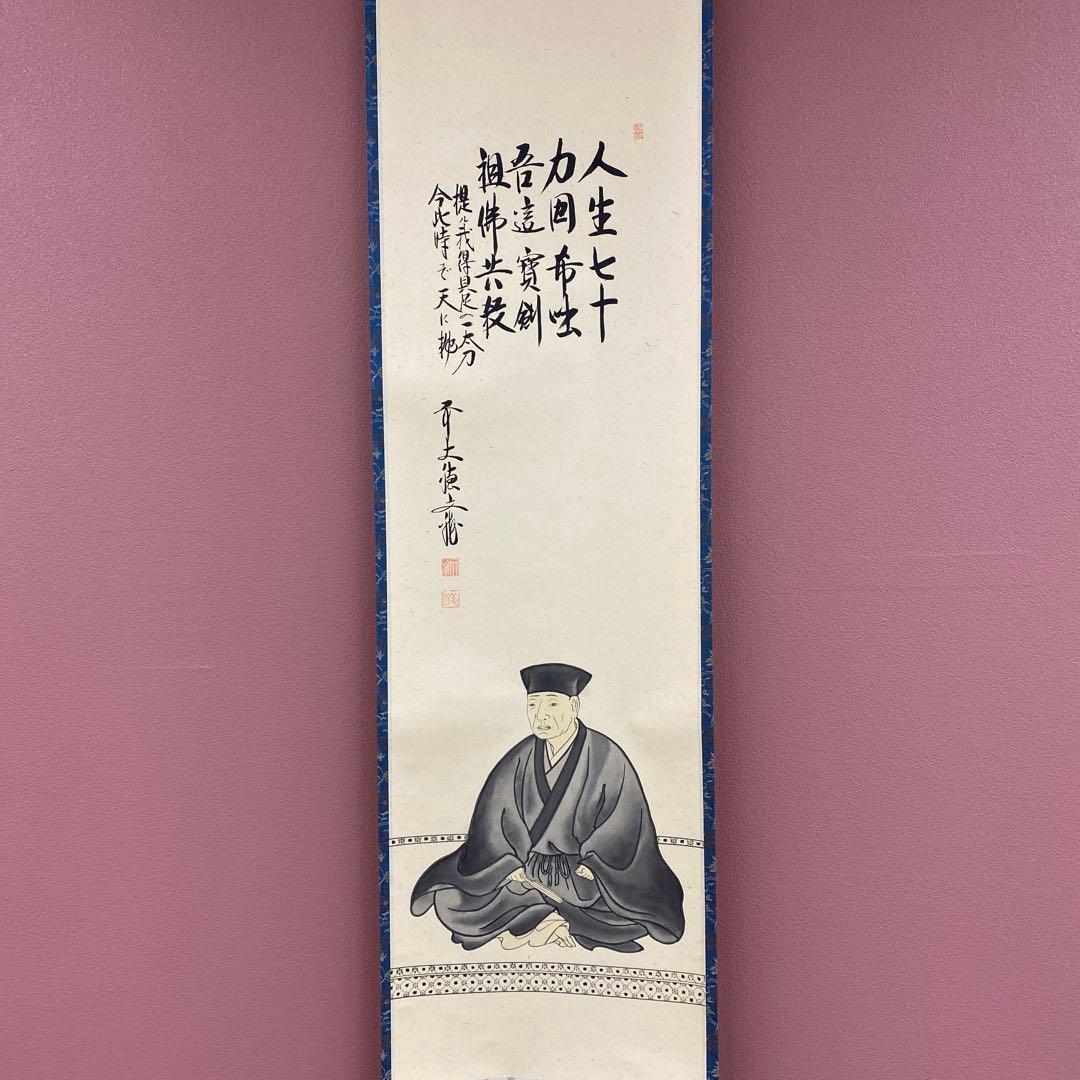 人生七十
力囲希咄
吾這寳剣
祖佛共殺
提ル我得具足の一太刀
今此時ぞ天に抛
前大徳文龍